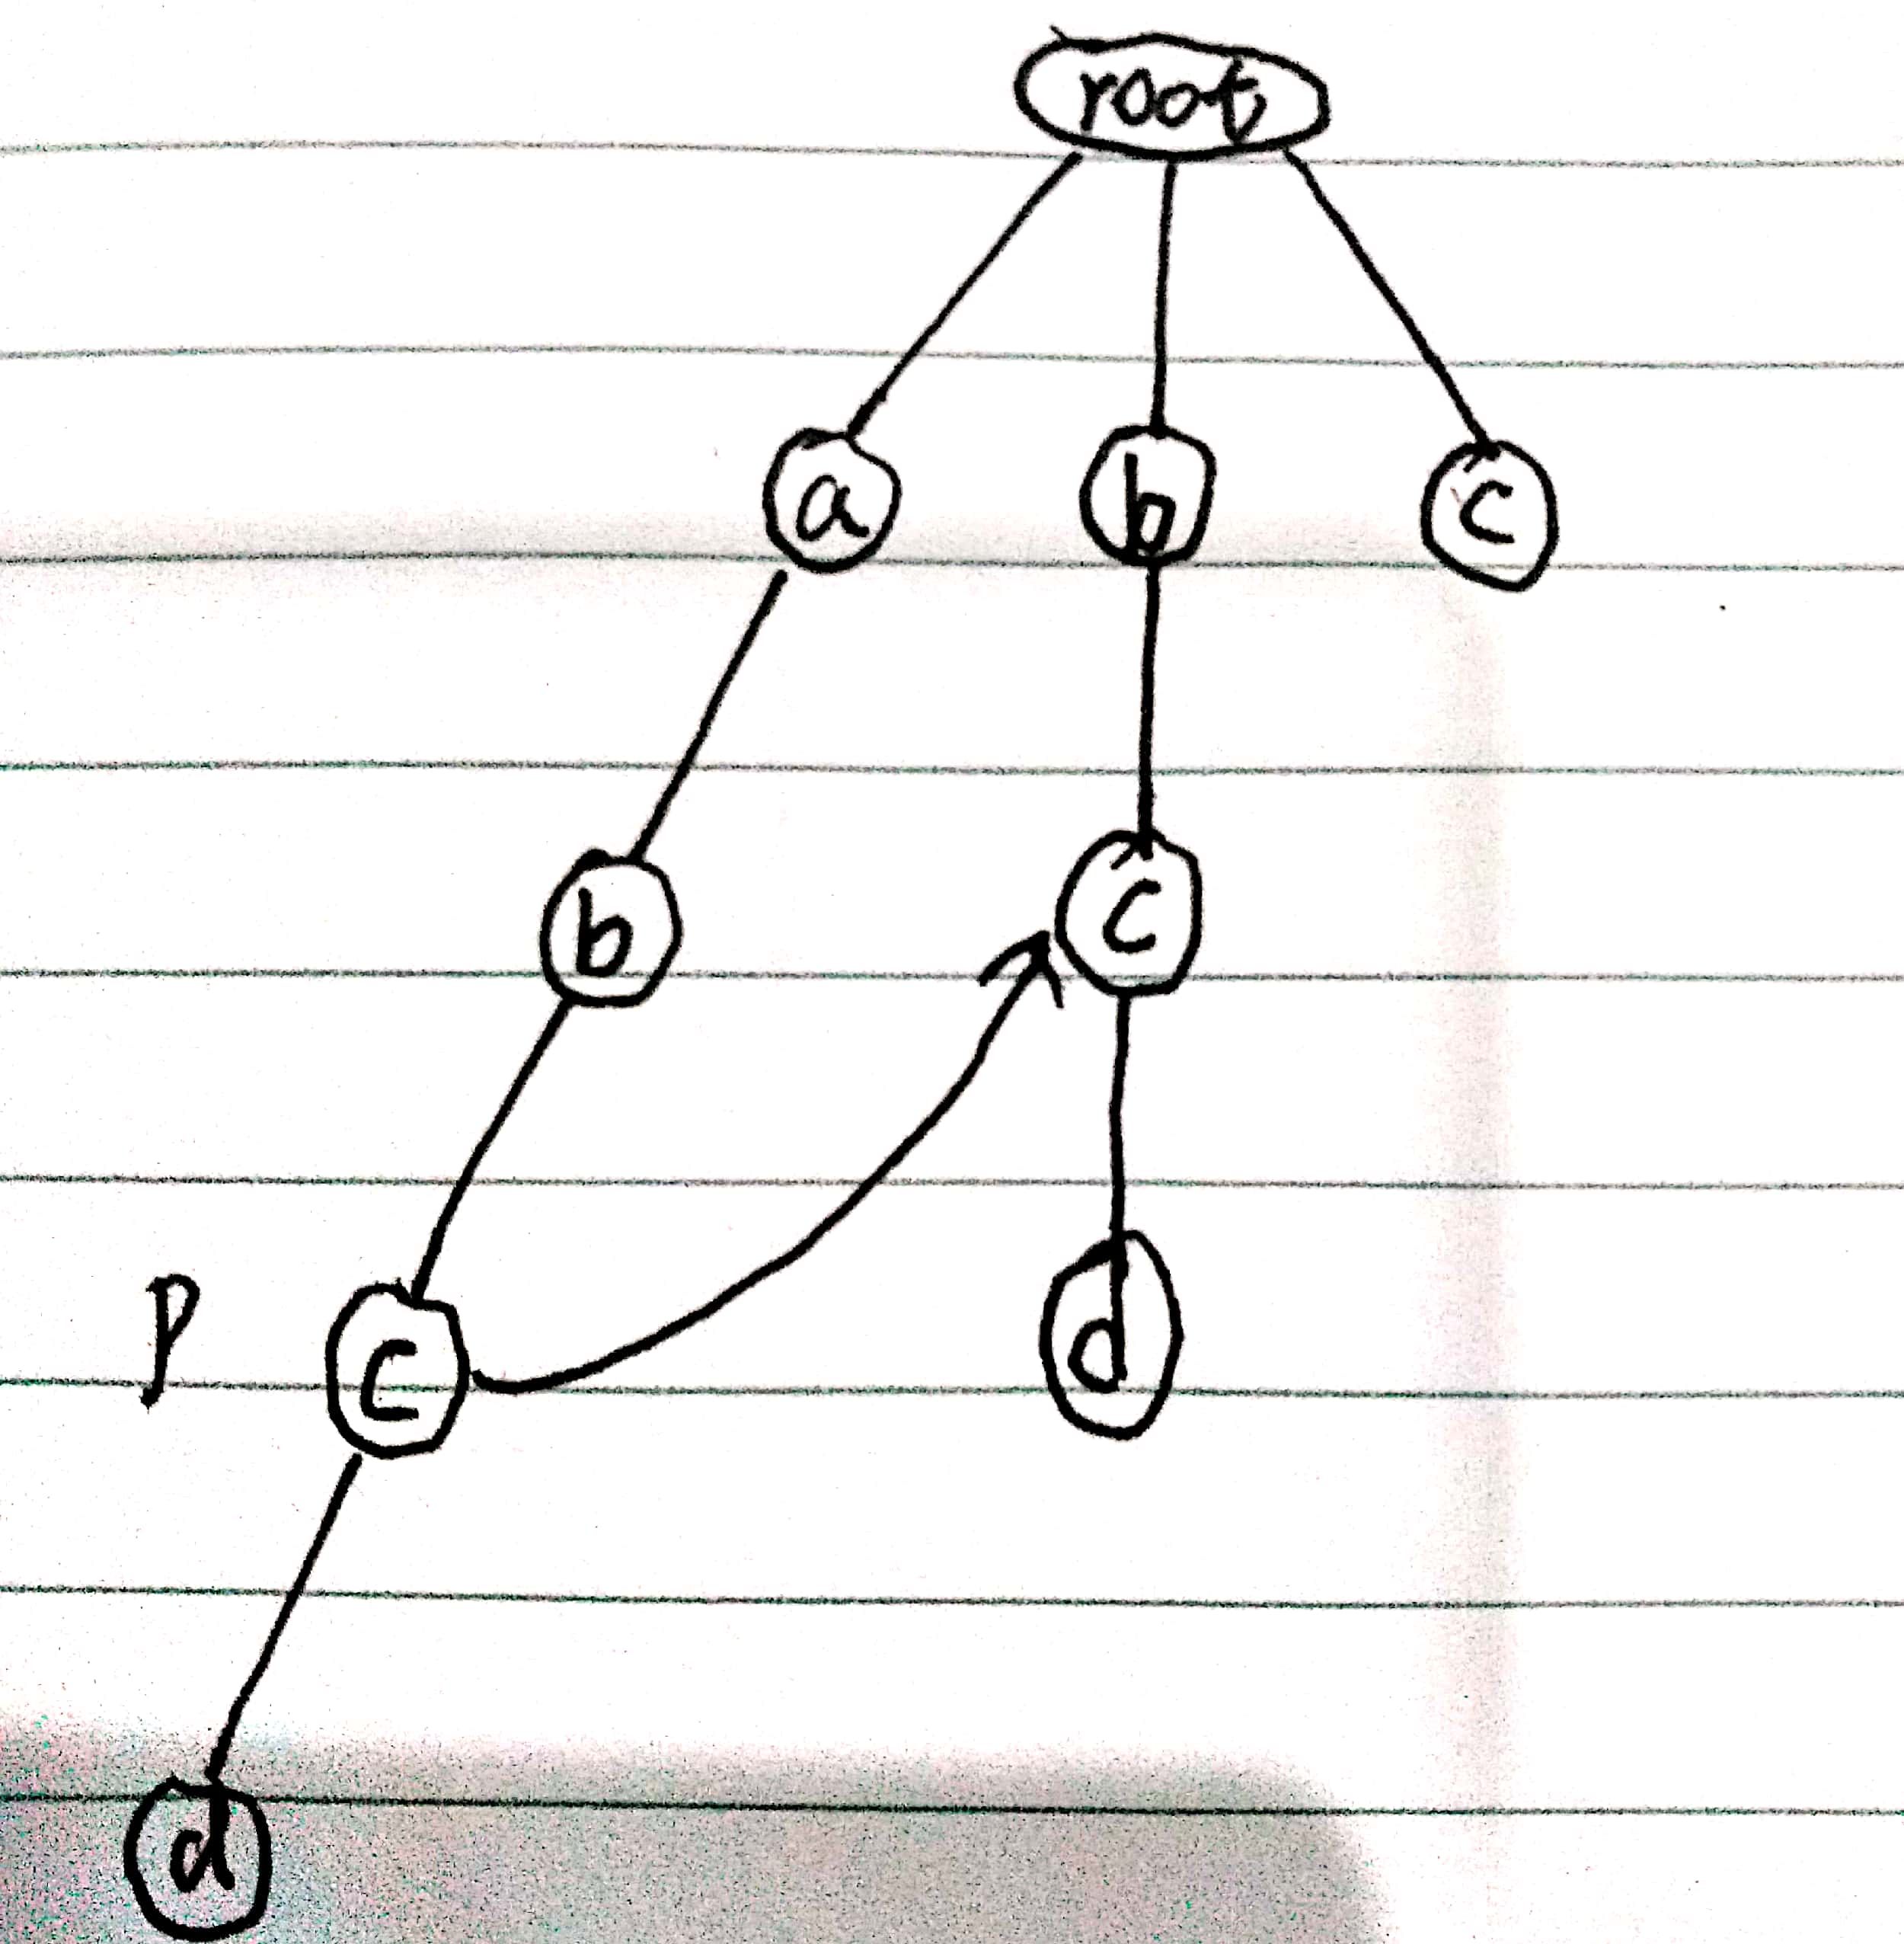 root
a b c
b c
P c d
d